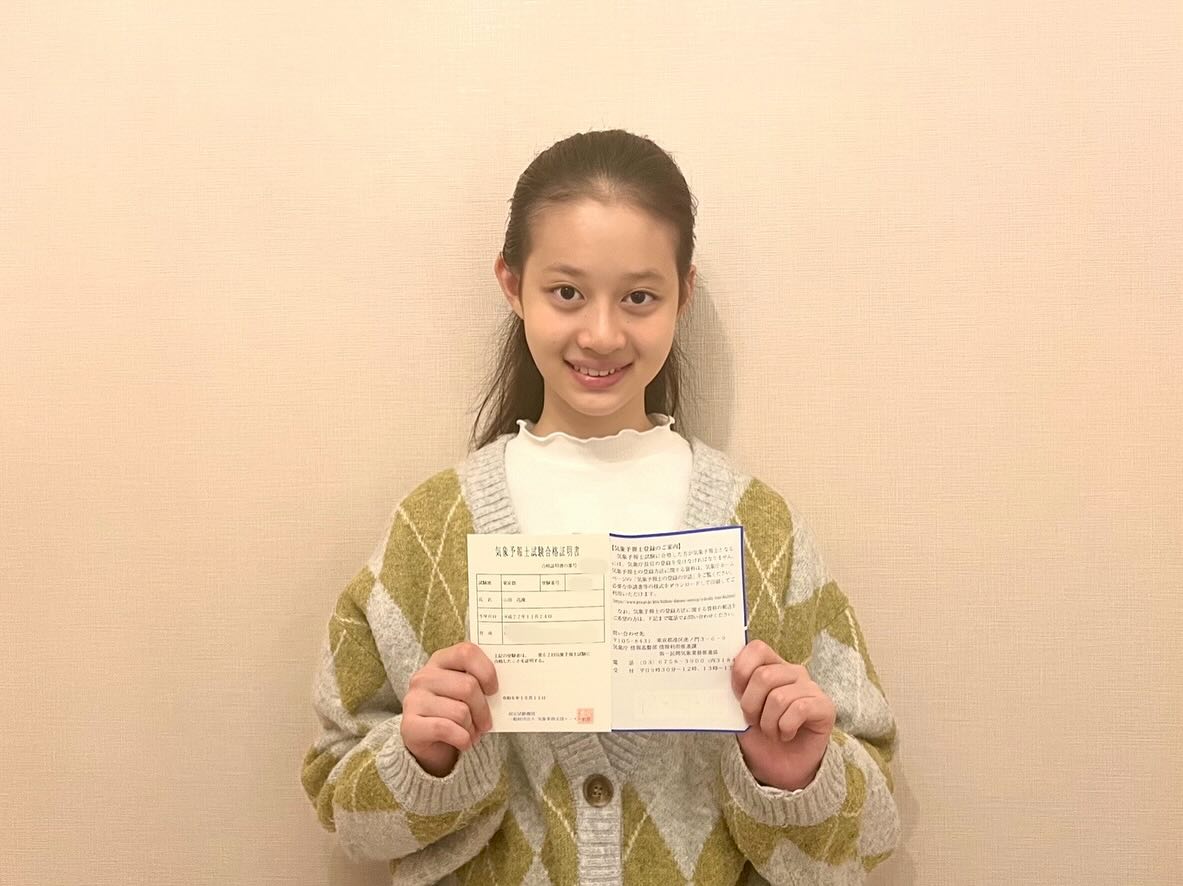 気象予報士試験合格証明書
合格証明書の番号
試験地 東京都 受験番号
氏 名
生年月日 平成22年11月24日
住 所
上記の受験者は、 第62回気象予報士試験に
合格したことを証明する。
指定試験機関
一般財団法人 気象業務支援センター
【気象予報士登録のご案内】
気象予報士試験に合格した方が気象予報士となる
には、気象庁長官の登録を受けなければなりません。
気象予報士の登録方法に関する資料は、気象庁ホーム
ページの「気象予報士の登録の申請」をご覧ください。
必要な申請書等の様式をダウンロードして印刷してご
利用いただけます。
なお、気象予報士の登録方法に関する資料の郵送を
ご希望の方は、下記まで電話でお問い合わせください。
問い合わせ先
〒105-8431 東京都港区虎ノ門3-6-9
気象庁 情報基盤部 情報利用推進課
電 話 (03)6758-3900
受 付 平日9時30分~12時、13時~